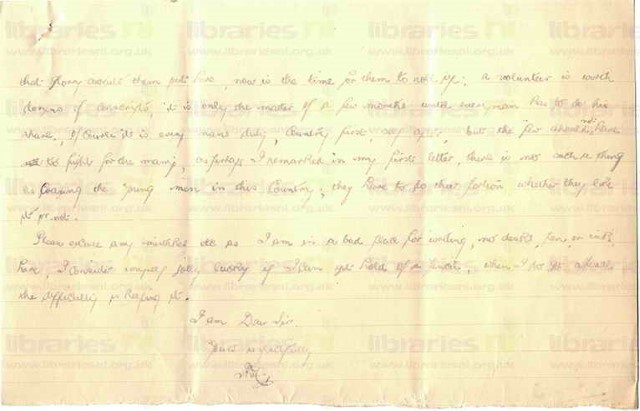 that glory awaits them out here, now is the time for them to roll up; a volunteer is worth
dozens of conscripts, it is only the matter of a few months until every man has to do his
share, of course it is every mans duty, Country first, after, but the few should not have
to fight for the many, as perhaps I remarked in my first letter, there is not such a thing
as forcing the young men in this Country; they have to do their portion whether they like
it or not.
Please excuse any mistakes etc as I am in a bad place for writing, no desks, pen, or ink
here, I consider myself lucky if I can get hold of a pencil, when I do get it
the difficulty is keeping it.
I am Dear Sir
Yours